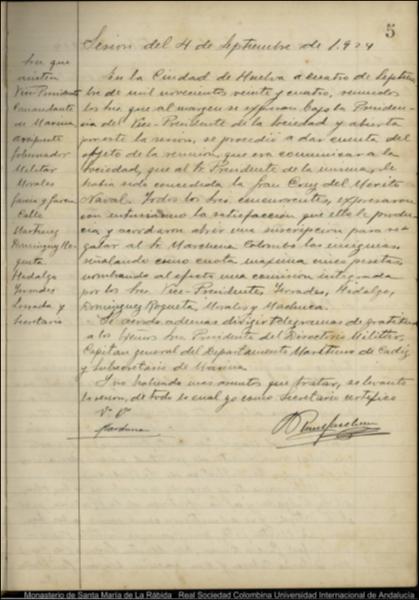 5
Sesion del 4 de Septiembre de 1.924
Sres que
asisten
Vice-Presidente
Comandante
de Marina
Gobernador
Militar
Morales
Garcia y Garcia
Calle
Martinez
Dominguez Ro-
queta
Hidalgo
Terrades
Losada y
Secretario
En la Ciudad de Huelva a cuatro de Septiem
bre de mil novecientos veinte y cuatro, reunidos
los Sres que al margen se expresan bajo la Presiden-
cia del Vice-Presidente de la Sociedad y abierta
por este la sesion, se procedió a dar cuenta del
objeto de la reunion, que era comunicar a la
Sociedad, que al Sr Presidente de la misma, le
habia sido concedida la Gran Cruz del Merito
Naval. Todos los Sres concurrentes, expresaron
con entusiasmo la satisfacción que ello le produ
cia y acordaron abrir una suscripcion para re-
galar al Sr Marchena Colombo las insignias
señalando como cuota maxima cinco pesetas
nombrando al efecto una comision integrada
por los Sres Vice-Presidente, Terrades, Hidalgo,
Dominguez Roqueta, Morales y Machuca.
Se acordó ademas dirigir telegramas de gratitud
a los Sres Presidente del Directorio Militar,
Capitan general del Departamento Maritimo de Cadiz
y Subsecretario de Marina
Y no habiendo mas asuntos que tratar, se levanto
la sesion, de todo lo cual yo como Secretario certifico
Vº Bº
Monasterio de Santa María de La Rábida Real Sociedad Colombina Universidad Internacional de Andalucía